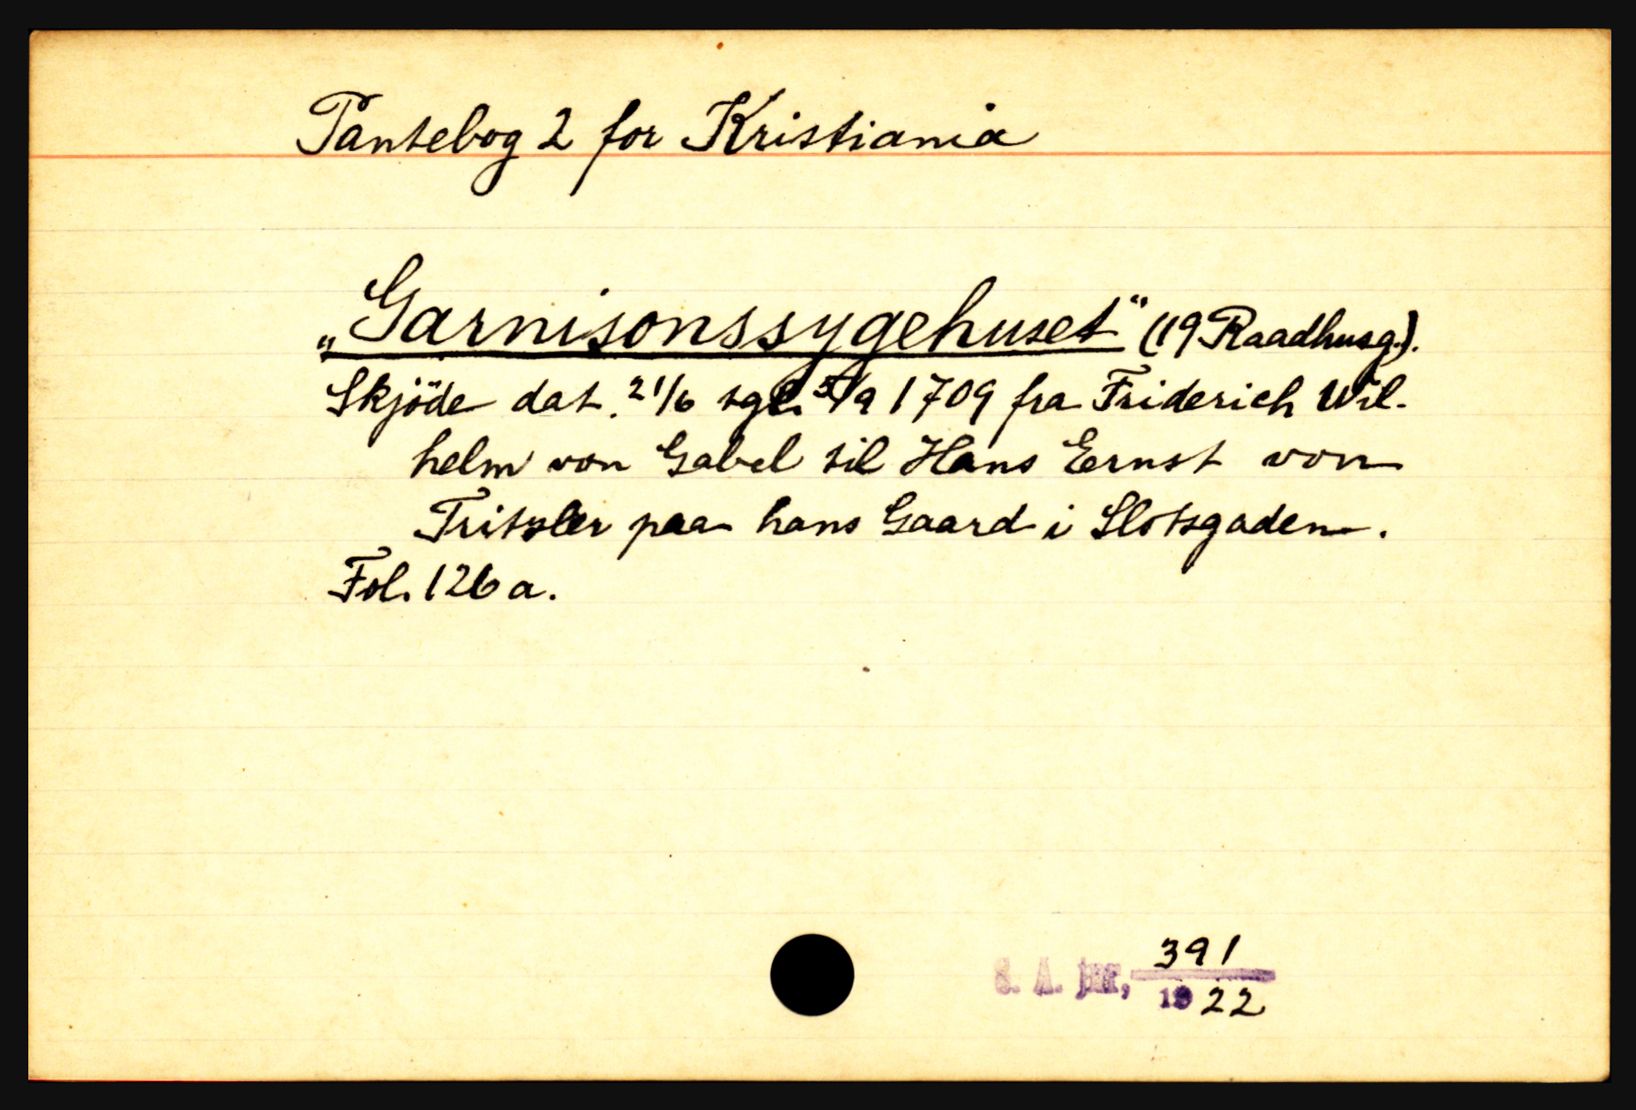 Pantebog 2 for Kristiania
„Garnisonssygehuset“ (19 Raadhusg.).
Skjöde dat. 21/6 tgl. 5/9 1709 fra Friderich Wil-
helm von Gabel til Hans Ernst von
Tritzler paa hans Gaard i Slotsgaden.
Fol. 126 a.
S. A. jnr, 391
1922